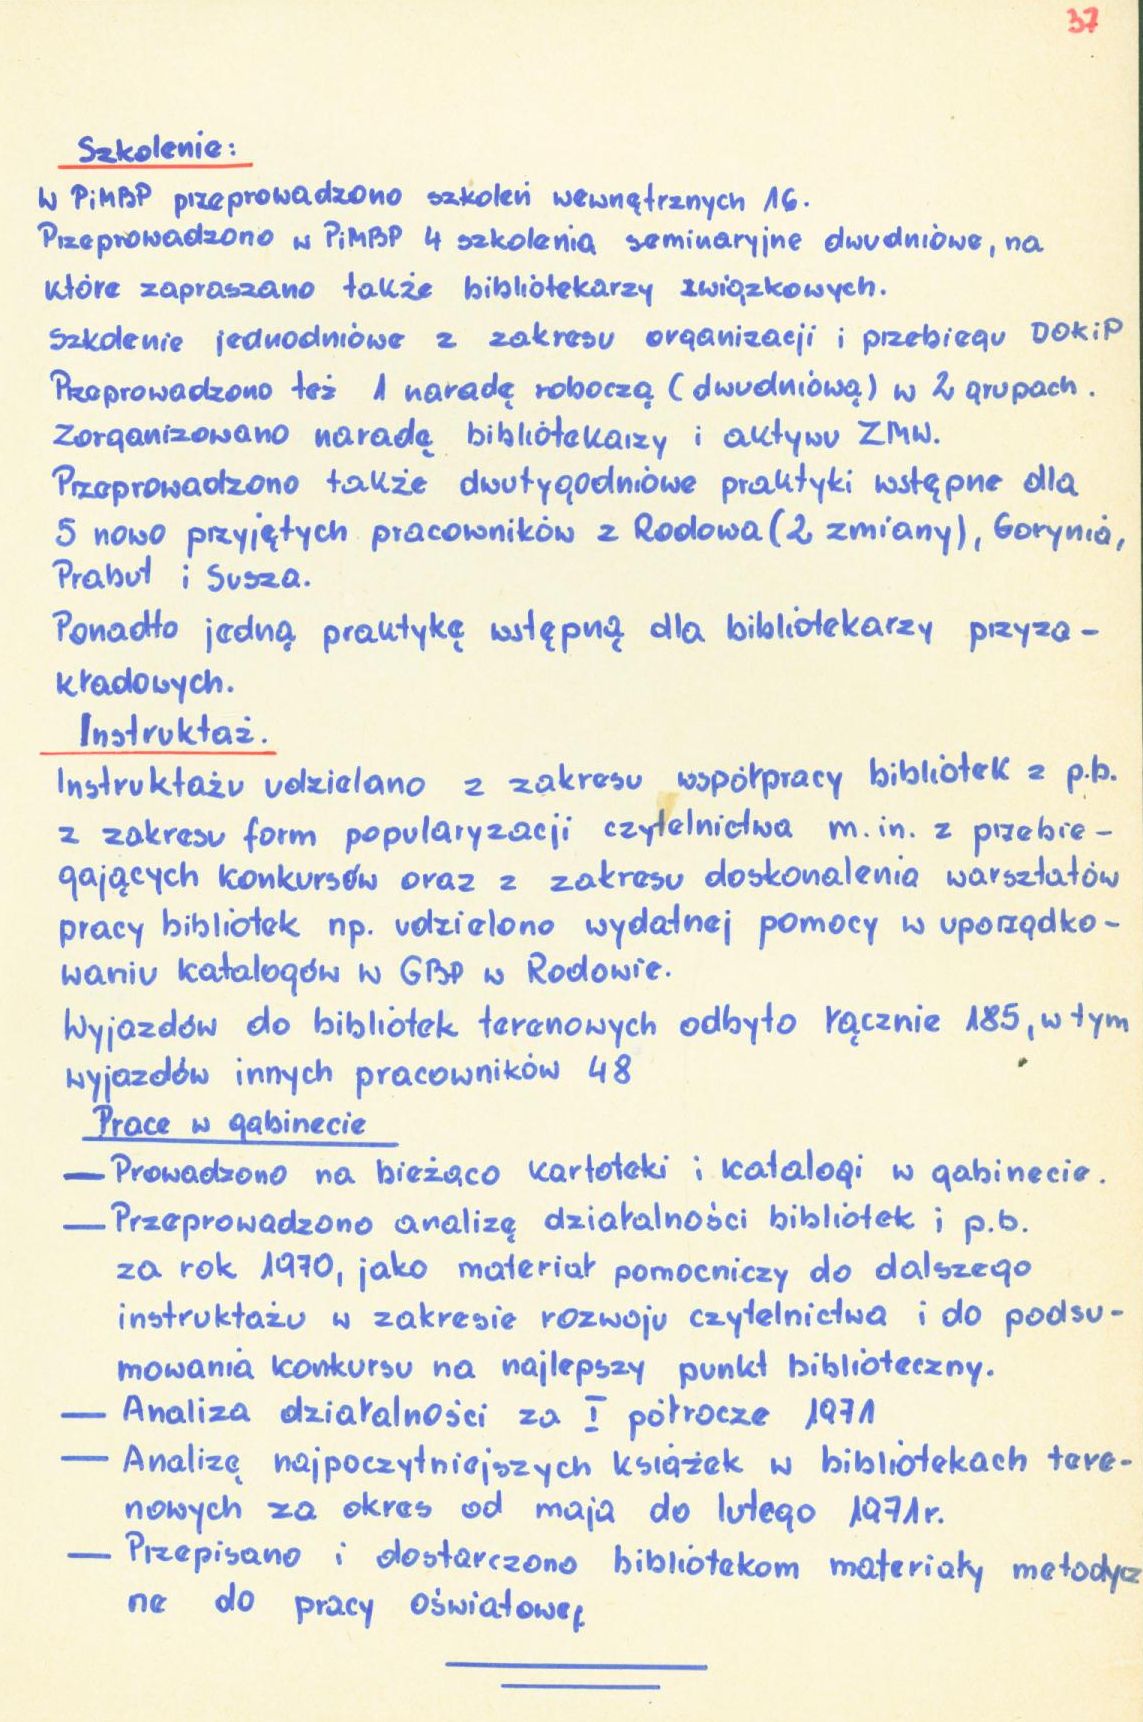 37
Szkolenie:
W PiMBP przeprowadzono szkoleń wewnętrznych 16.
Przeprowadzono w PiMBP 4 szkolenia seminaryjne dwudniowe, na
które zapraszano także bibliotekarzy związkowych.
Szkolenie jednodniowe z zakresu organizacji i przebiegu DOKiP
Przeprowadzono też 1 naradę roboczą (dwudniową) w 2 grupach.
Zorganizowano naradę bibliotekarzy i aktywu ZMW.
Przeprowadzono także dwutygodniowe praktyki wstępne dla
5 nowo przyjętych pracowników z Rodowa (2 zmiany), Gorynia,
Prabut i Susza.
Ponadto jedną praktykę wstępną dla bibliotekarzy przyza-
kładowych.
Instruktaż.
Instruktażu udzielano z zakresu współpracy bibliotek z p.b.
z zakresu form popularyzacji czytelnictwa m.in. z przebie-
gających konkursów oraz z zakresu doskonalenia warsztatów
pracy bibliotek np. udzielono wydatnej pomocy w uporządko-
waniu katalogów w GBP w Rodowie.
Wyjazdów do bibliotek terenowych odbyto łącznie 185, w tym
wyjazdów innych pracowników 48
Prace w gabinecie
— Prowadzono na bieżąco kartoteki i katalogi w gabinecie.
— Przeprowadzono analizę działalności bibliotek i p.b.
za rok 1970, jako materiał pomocniczy do dalszego
instruktażu w zakresie rozwoju czytelnictwa i do podsu-
mowania konkursu na najlepszy punkt biblioteczny.
— Analiza działalności za I półrocze 1971
— Analizę najpoczytniejszych książek w bibliotekach tere-
nowych za okres od maja do lutego 1971r.
— Przepisano i dostarczono bibliotekom materiały metodycz
ne do pracy oświatowej